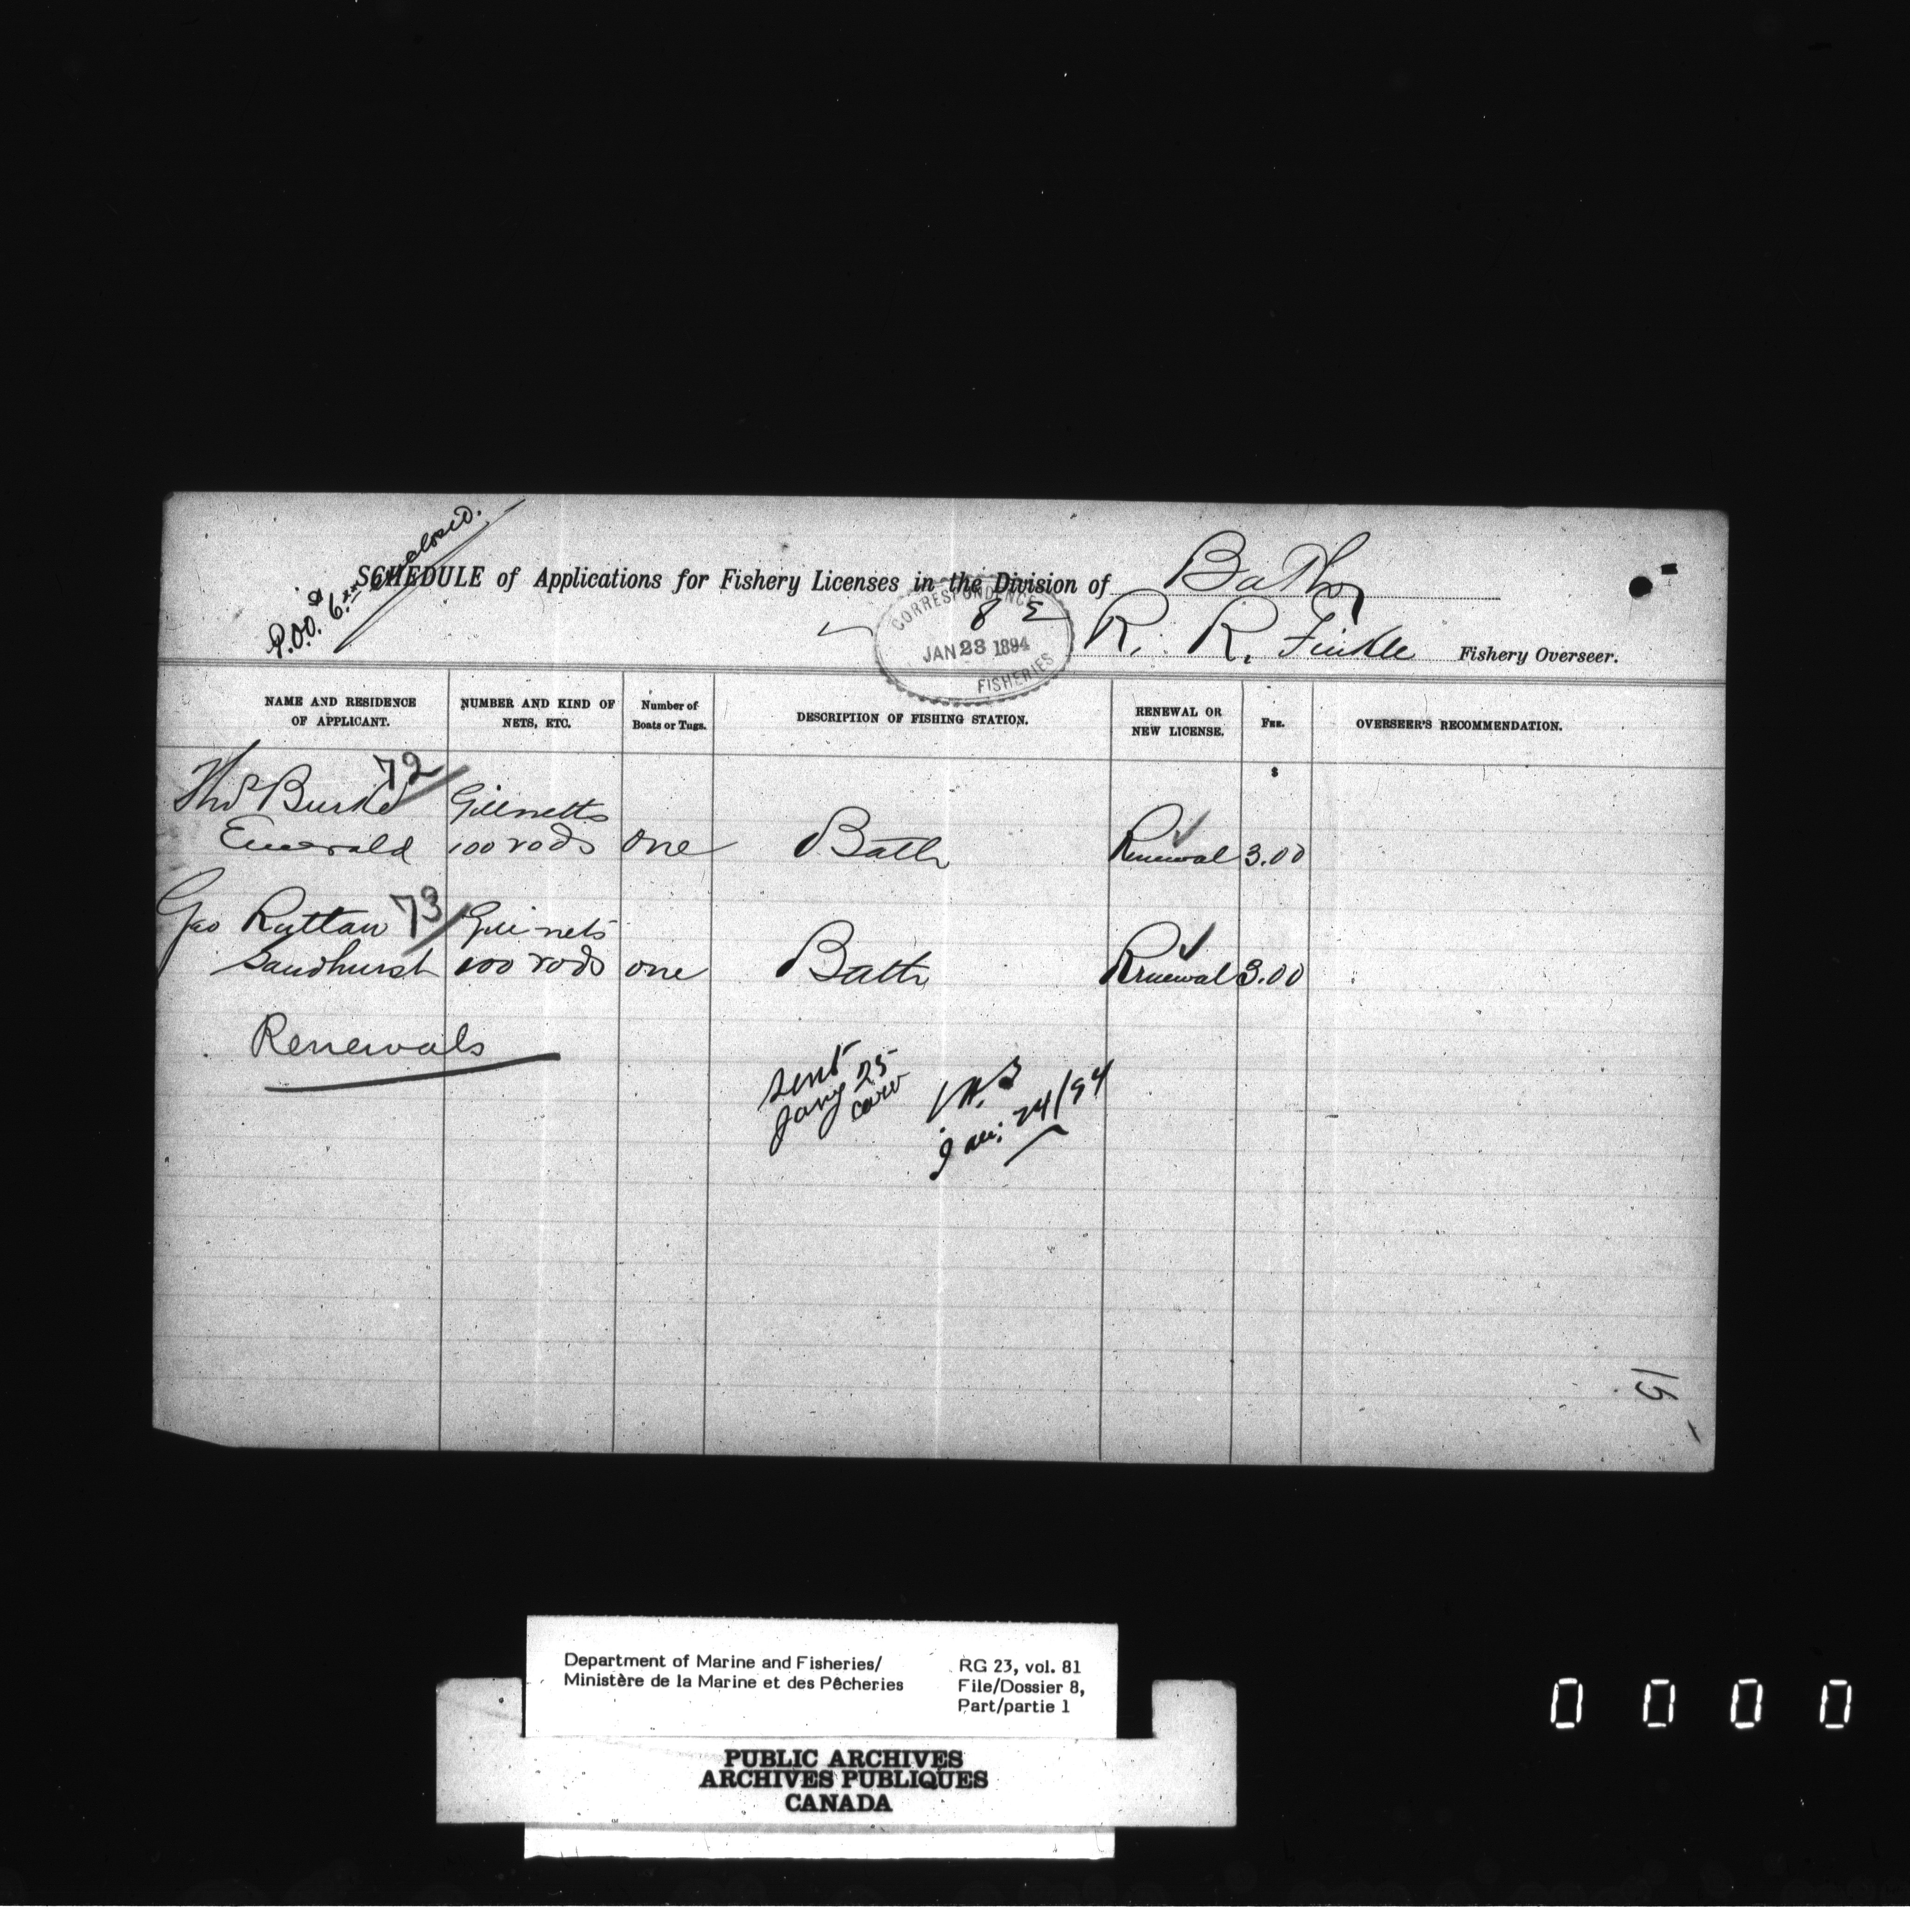 P.O.O. $6.xx enclosed.
SCHEDULE of Applications for Fishery Licenses in the Division of Bath
CORRESPONDENCE
8
JAN 23 1894
FISHERIES
R. R. Finkle Fishery Overseer.
NAME AND RESIDENCE OF APPLICANT. NUMBER AND KIND OF NETS, ETC. Number of Boats or Tugs. DESCRIPTION OF FISHING STATION. RENEWAL OR NEW LICENSE. FEE. OVERSEER'S RECOMMENDATION.
$
Thos Burke 72 Gillnetts
Emerald 100 rods one Bath Renewal 3.00
Geo Ruttan 73 Gill nets
Sandhurst 100 rods one Bath Renewal 3.00
Renewals
sent
Jany 25
Jan. 24/94
15
Department of Marine and Fisheries/
Ministère de la Marine et des Pêcheries
RG 23, vol. 81
File/Dossier 8,
Part/partie 1
PUBLIC ARCHIVES
ARCHIVES PUBLIQUES
CANADA
0 0 0 0